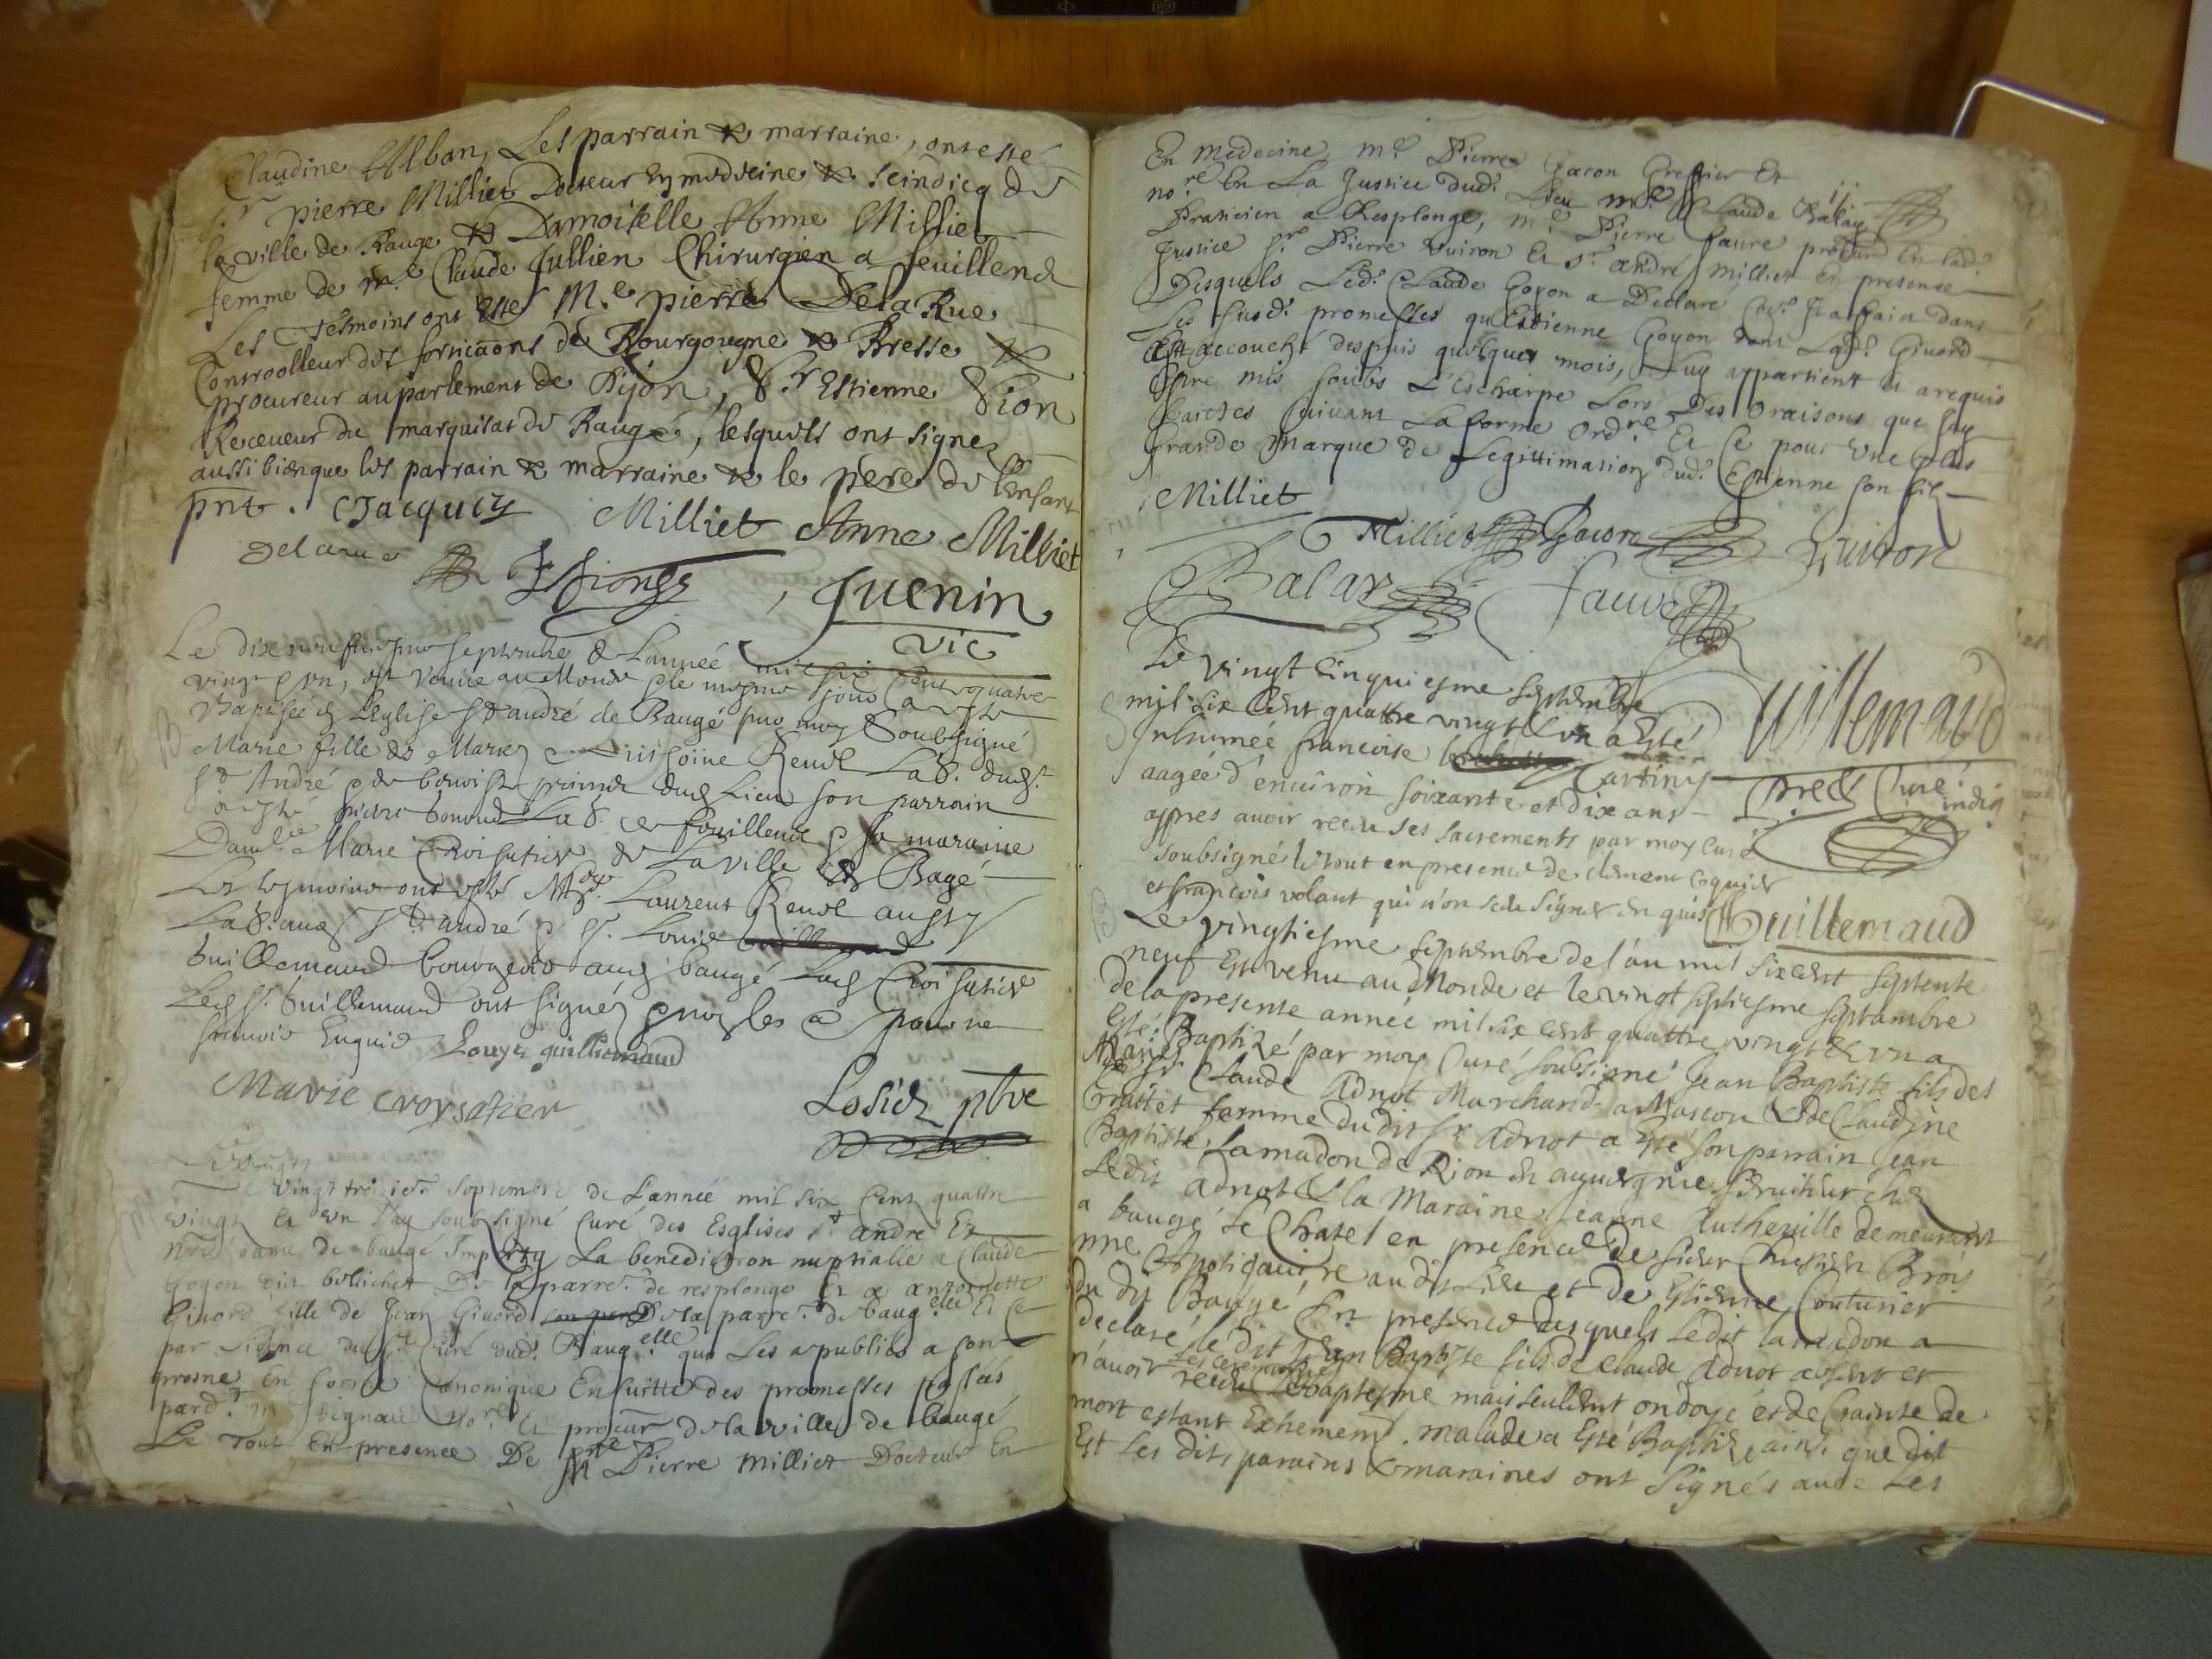 Claudine Alban, Les parrain & marraine, ont esté
Sr. pierre Milliet Docteur en medecine & scindicq de
la ville de Baugé & Damoiselle Anne Milliet
femme de m.e Claude Jullien Chirurgien a feuillend
Les tesmoins ont esté M.e pierre De la Rue
Controolleur des de Bourgougne & Bresse &
procureur au parlement de Dijon, Sr Estienne Sion
Receveur du marquisat de Baugé, lesquels ont signez
aussi bien que les parrain & marraine & le pere de l'enfant
pnt. Jacquin Milliet Anne Milliet
Delarue
Guenin
vic
Le dixneufviesme septembre de L'année mil six cent quatre
vingt & un, est venue au Monde & le mesme jour a esté
Baptisée en L'Eglise St andré de Baugé par moy Soubsigné
Marie fille de Mariez Renol Lab. dud.
St. André & de benoiste son parrain
a esté pierre Lab. de fouillend & sa maraine
Dam.lle Marie Croisatier de La ville de Bagé
Les tesmoins ont esté Laurent Renol aussy
Lab. aud. St. andré & Sr. Louis
Guillemaud bourgeois aud. baugé Lad. Croisatier
Led. Sr. Guillemaud ont signéz & non les a pour ne
scavoir Enquis Louys guillemaud
Marie croysatier
Losier pbre
Le vingt troisie. septembre de L'année mil six Cent quattre
vingt et un J'ay soubsigné Curé des Esglises St andré Et
nre dame de baugé Imparty La benediction nuptialle a Claude
Goyon dit bellichet De la parre. de replonge Et a anthoinette
Givord fille de Jean Givord De la parre. de baug.elle Et Ce
par Licence du Sr. Curé dud. Baug.elle qui Les a publiés a son
prosne En forme Canonique Ensuitte des promesses passées
pard.t No.re Et procur. de la ville de baugé
Le Tout En presence De M.re Pierre Milliet Docteur En
En Medecine, m.e Pierre Gacon Greffier Et
no.re En La Justice dud. Lieu m.e Claude Balay
Praticien a Resplonge, m.e Pierre Faure procur. En lad.
Justice Pierre Vuiron Et Sr. andré Milliet En presence
Desquels Led. Claude Goyon a Declaré
Les susd. promesses qu'Estienne Goyon dont Lad. Givord
Est accouché despuis quelques mois, Luy appartient Et a requis
Estre mis soubs L'Escharpe Lors Des Oraisons que J'ay
faictes suivant La forme Ord.re Et Ce pour Une plus
Grande marque de Legittimation dud. Estienne son fils
Milliet
Milliet Gacon Vuiron
Balay faure
Guillemaud
prebs. Curé indig.
Le vingt cinquiesme septembre
mil six cent quattre vingt & un a Esté
Inhumée francoise Cartiny
aagée d'environ soixante et dix ans
appres avoir receu ses sacrements par moy Curé
soubsigné le tout en presence de clement coquier
et francois volant qui n'on sceu signer En quis Guillemaud
Le vingtiesme septembre de l'an mil sixcent septente
neuf Est venu au Monde et le vingt septiesme septambre
de la presente année mil six cent quattre vingt & un a
Esté Baptizé par moy Curé soubsigné Jean Baptiste fils des
Mariez Sr. Claude Adnot Marchand a Mascon & de Claudine
Grattet famme du dit Sr. Adnot a Esté son parrain Jean
Baptiste Lamadon de Rion en auvergnie serviteur chez
Ledit Adnot & la Maraine Jeanne Autheville demeurant
a baugé Le Chatel en presence de sieur Chrestien Broy
Apoticaire au dit Lieu et de Estienne Couturier
du dit Baugé En presence desquels Ledit lamadon a
declaré le dit Jean Baptiste fils de Claude Adnot absent et
n'avoir receu Les ceremonies baptesme mais seulement ondoyé et de Crainte de
mort estant Extremem.t malade a Esté Baptizé ainsi que dit
Est Les dits parains & maraines ont signés avec Les